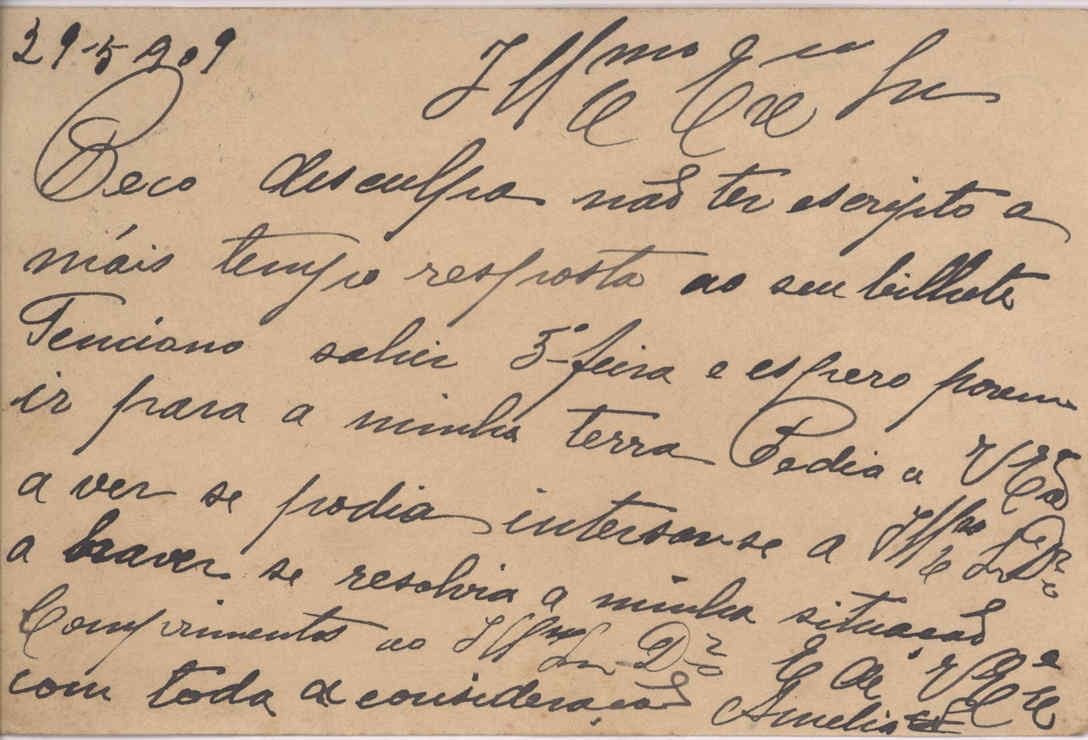 29-5-909
Illmo e Exmo Sr
Peço desculpa não ter escripto a
máis tempo resposta ao seu bilhete
Tenciono sahir 5ª feira e espero porem
ir para a minha terra Pedia a V Exª
a ver se podia interssar-se a Illmo Sr Dr
a haver se resolvia a minha situação
Comprimentos ao Illmo Sr Dr E de V Exª
com toda a consideração Amelia